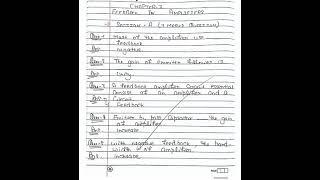 CHAPTER-2
Feedback In Amplifier
Section-A (1 Marks Question)
Que-1 Most of the amplifier use
feedback
Ans- negative
Que-2 The gain of emitter follower is
Ans- Unity
Que-3 A feedback amplifier Consis essential
consist of an amplifier and a
Circuit
Ans- Feedback
Que-4 Emitter by pass Capacitor the gain
of amplifier
Ans- increase
Que-5 with negative feedback the band-
width of an amplifier
Ans- increase.